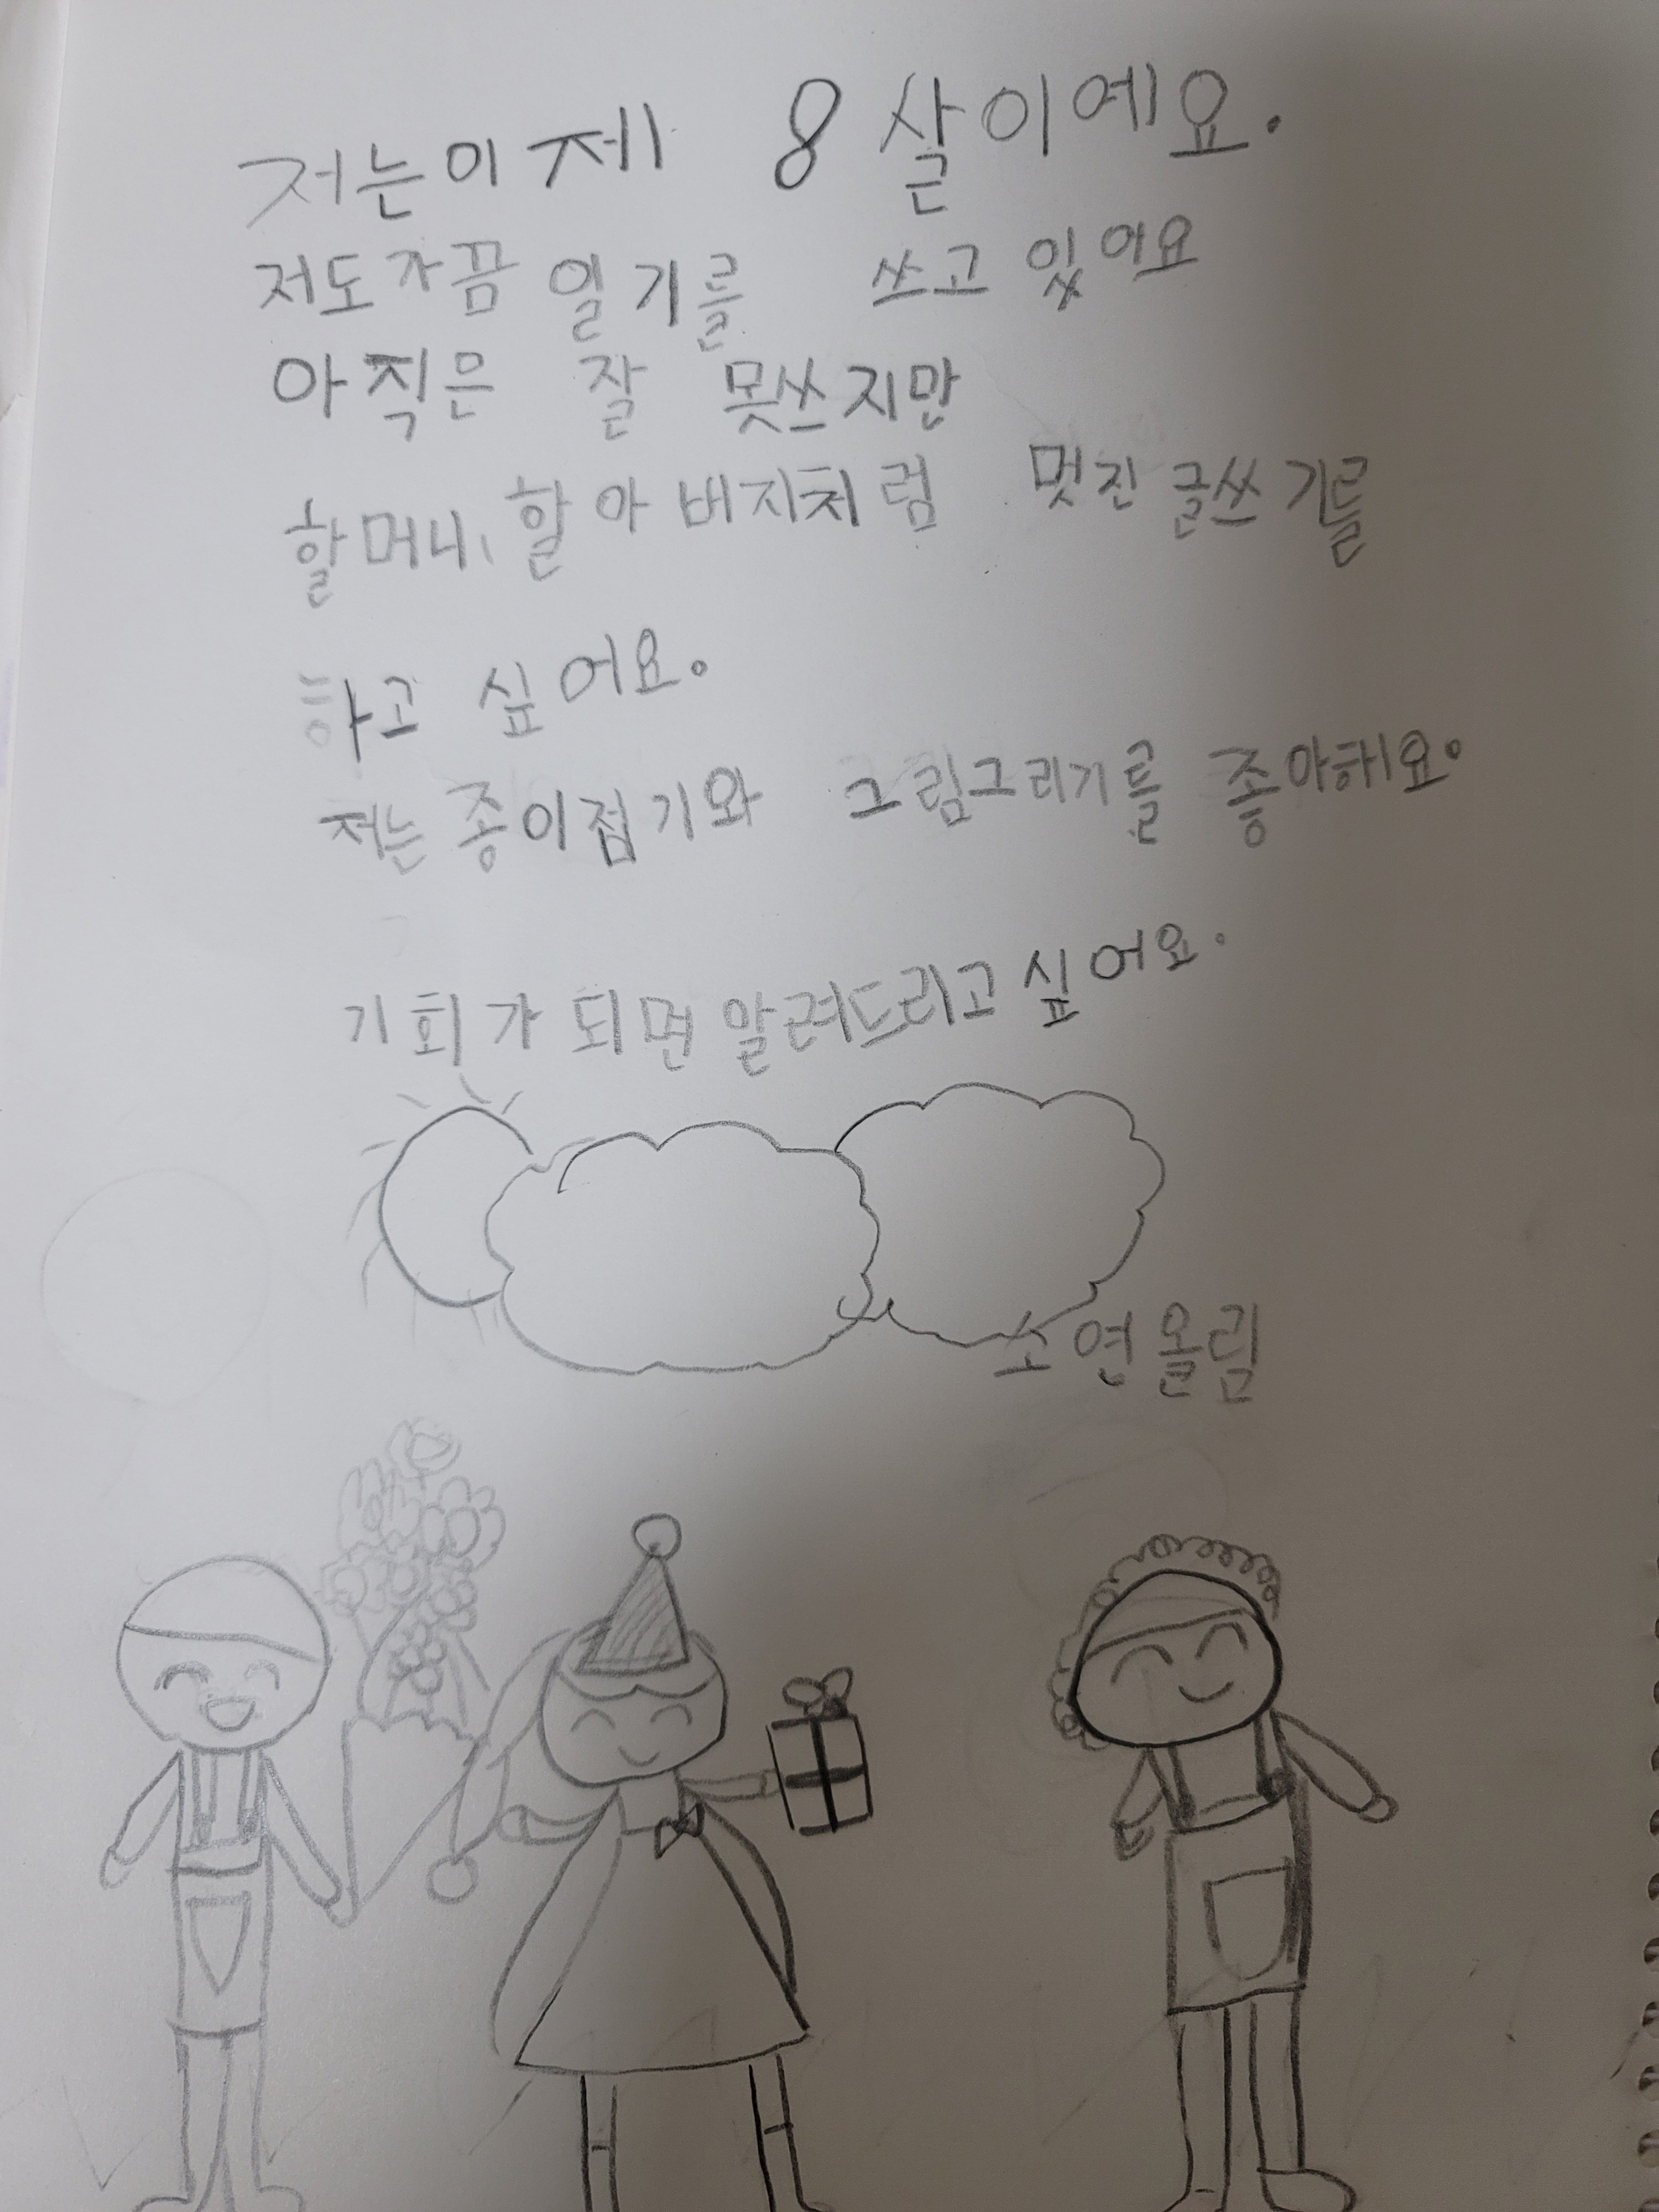 저는이제 8살이에요.
저도가끔 일기를 쓰고있어요
아직은 잘 못쓰지만
할머니, 할아버지처럼 멋진글쓰기를
하고 싶어요.
저는종이접기와 그림그리기를 좋아해요.
기회가되면알려드리고싶어요.
소연올림